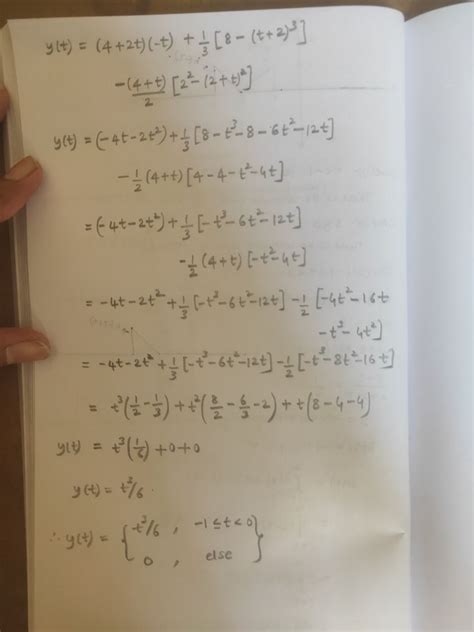 y(t) = (4+2t)(-t) + 1/3 [8 - (t+2)^3]
- (4+t)/2 [2^2 - (2+t)^2]
y(t) = (-4t-2t^2) + 1/3 [8-t^3-8-6t^2-12t]
- 1/2 (4+t) [4-4-t^2-4t]
= (-4t-2t^2) + 1/3 [-t^3-6t^2-12t]
- 1/2 (4+t) [-t^2-4t]
= -4t-2t^2 + 1/3 [-t^3-6t^2-12t] - 1/2 [-4t^2-16t
-t^3-4t^2]
= -4t-2t^2 + 1/3 [-t^3-6t^2-12t] - 1/2 [-t^3-8t^2-16t]
= t^3 (1/2 - 1/3) + t^2 (8/2 - 6/3 - 2) + t (8-4-4)
y(t) = t^3 (1/6) + 0 + 0
y(t) = t^3/6
∴ y(t) = { t^3/6 , -1 ≤ t < 0 }
0 , else